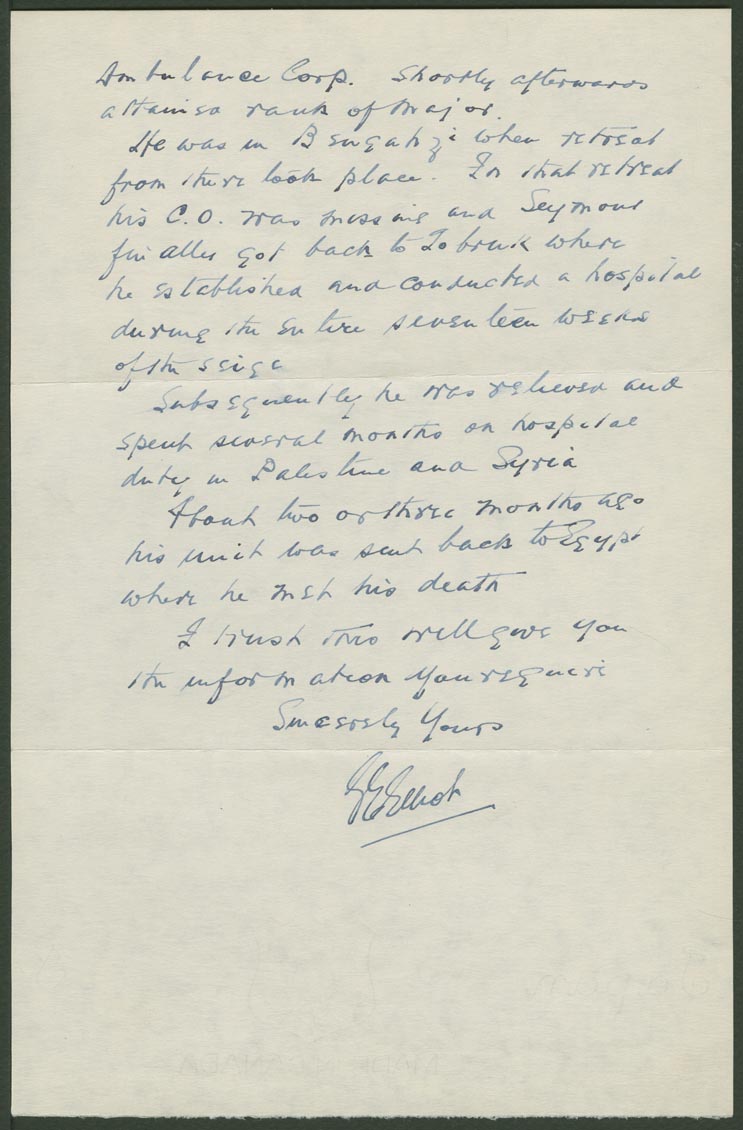 Ambulance Corp. Shortly afterwards
attained rank of Major.
He was in Bengahzi when retreat
from there took place. In that retreat
his C.O. was missing and Seymour
finalley got back to Tobruk where
he established and conducted a hospital
during the entire seventeen weeks
of the seige
Subsequently he was relieved and
spent several months on hospital
duty in Palestine and Syria
About two or three months ago
his unit was sent back to Egypt
where he met his death
I trust this will give you
the information you require
Sincerely Yours
Elliot
MADE IN CANADA